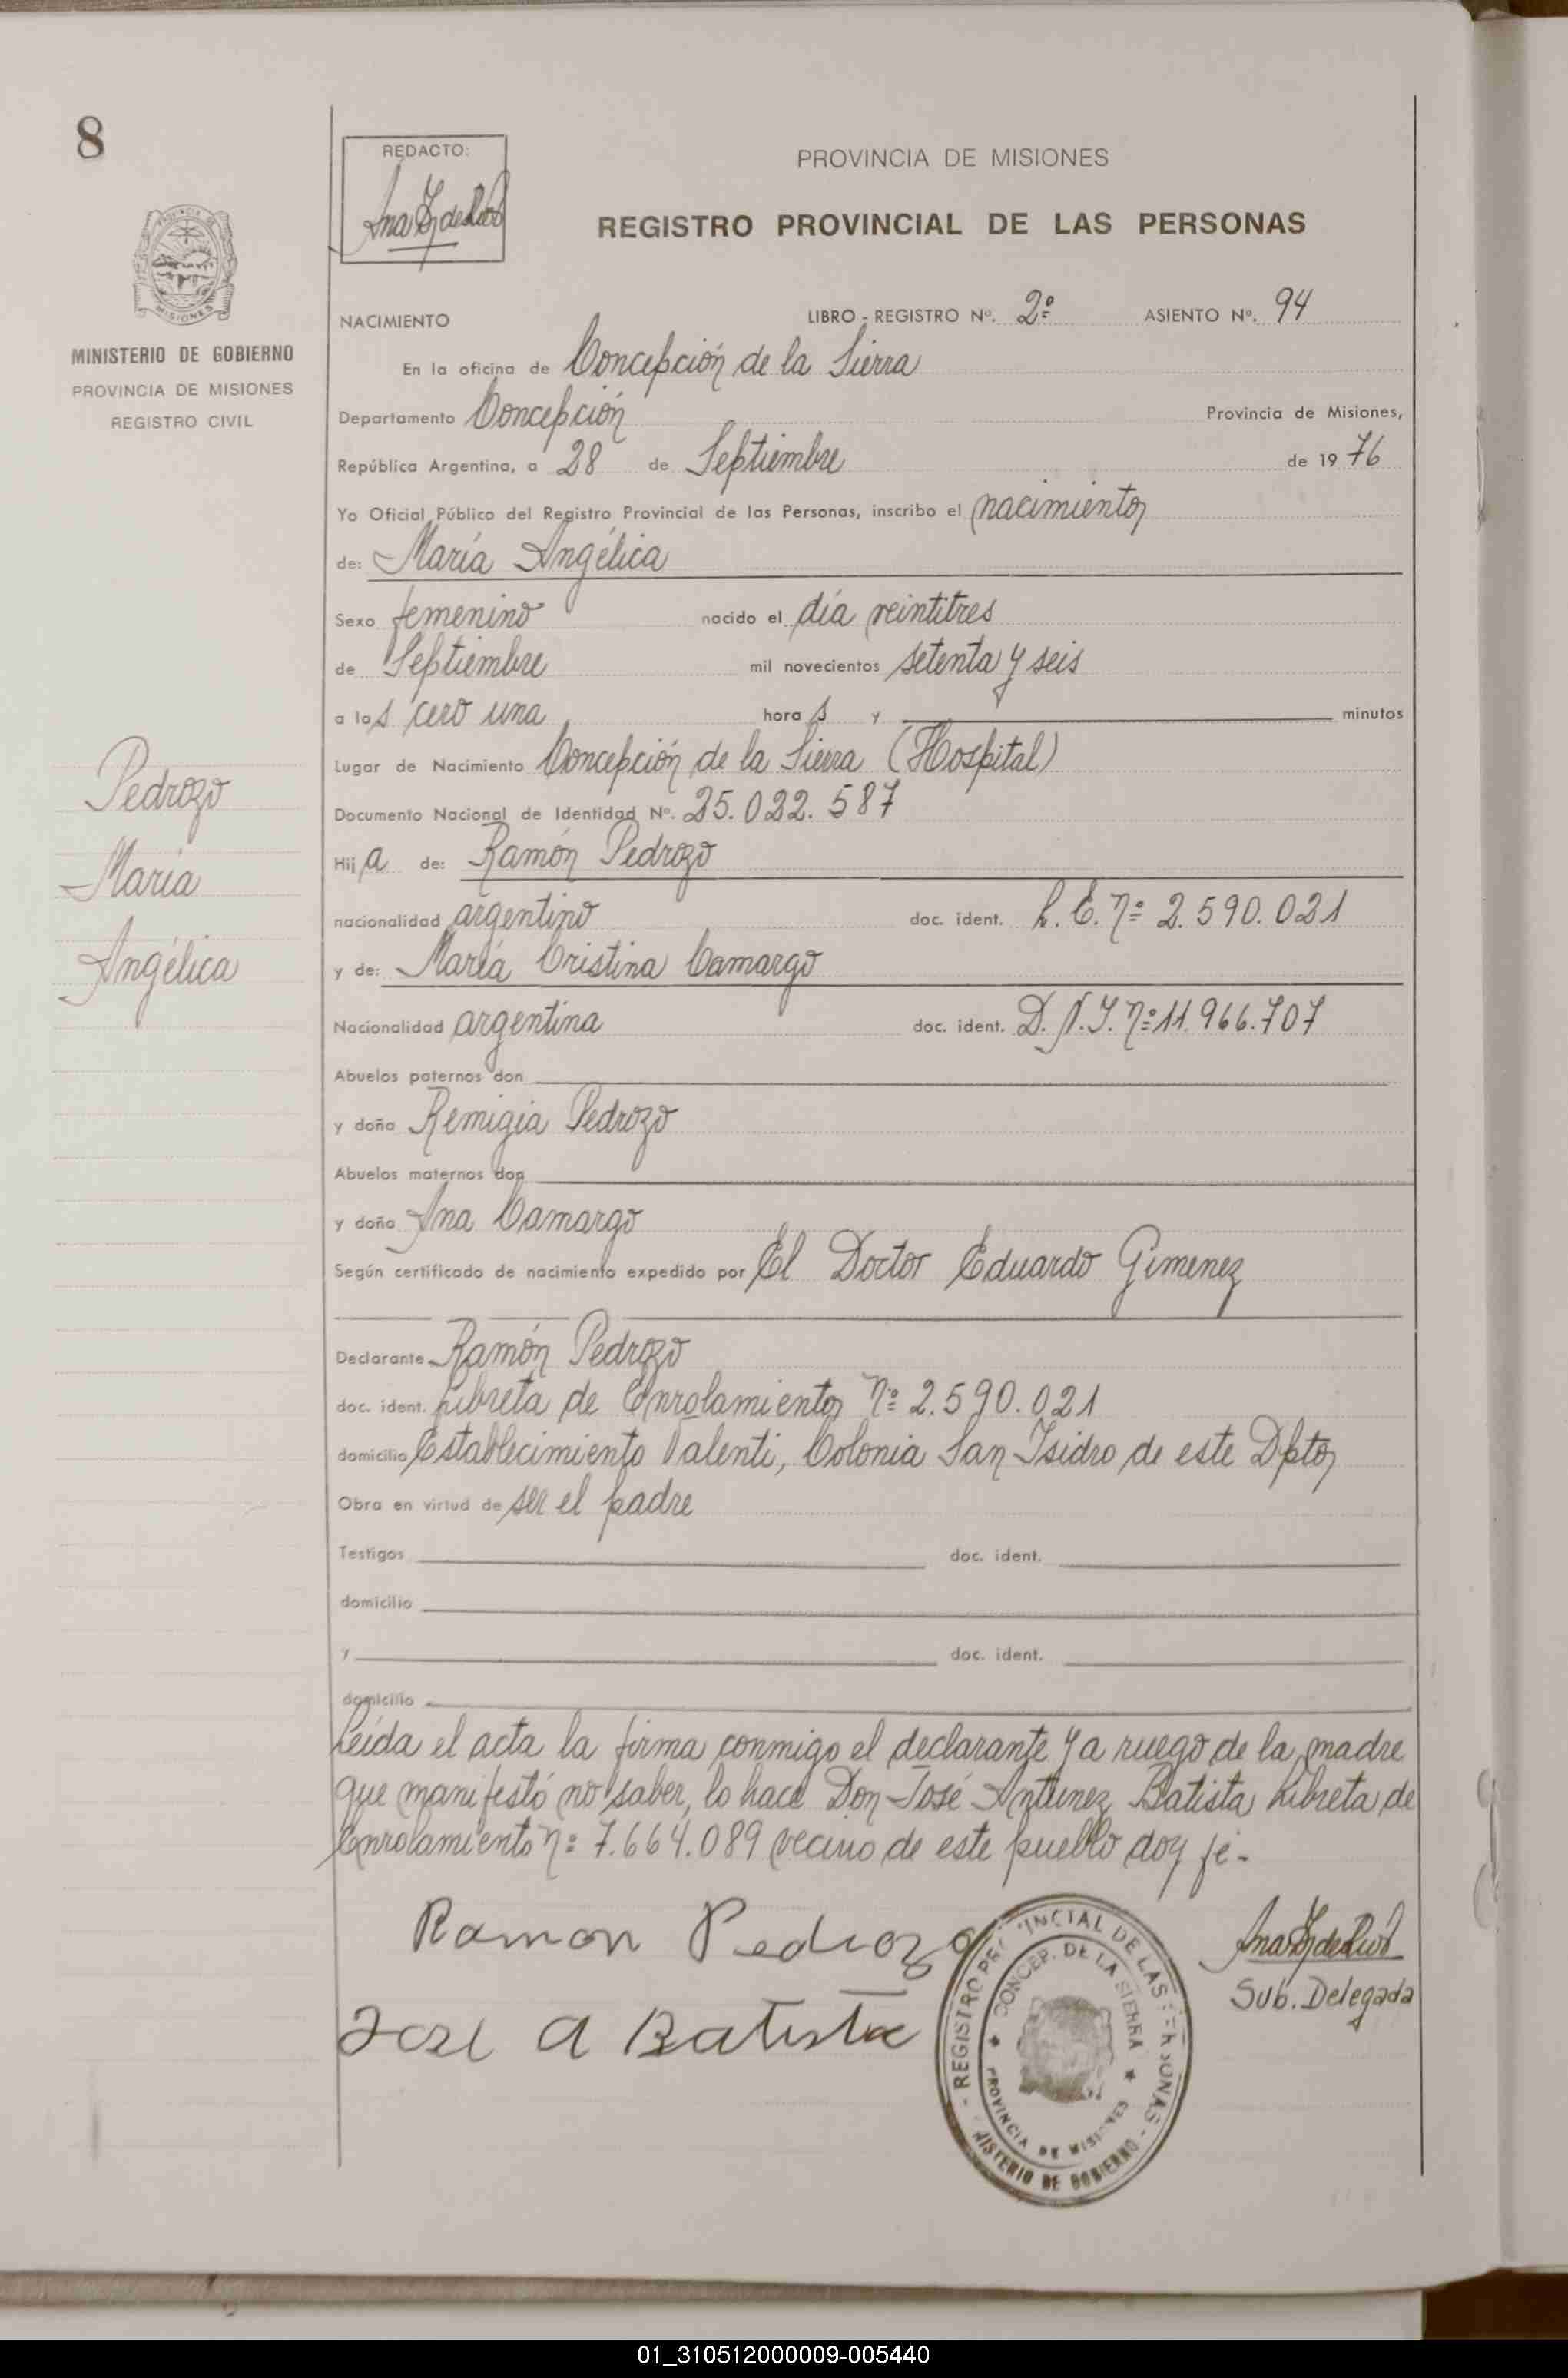 8
REDACTO:
PROVINCIA DE MISIONES
REGISTRO PROVINCIAL DE LAS PERSONAS
MISIONES
MINISTERIO DE GOBIERNO
PROVINCIA DE MISIONES
REGISTRO CIVIL
NACIMIENTO LIBRO - REGISTRO Nº. 2º ASIENTO Nº. 94
En la oficina de Concepción de la Sierra
Departamento Concepción Provincia de Misiones,
República Argentina, a 28 de Septiembre de 1976
Yo Oficial Público del Registro Provincial de las Personas, inscribo el nacimiento
de: María Angélica
Sexo femenino nacido el día veintitres
de Septiembre mil novecientos setenta y seis
a las cero una horas y minutos
Lugar de Nacimiento Concepción de la Sierra (Hospital)
Documento Nacional de Identidad Nº. 25.022.587
Hija de: Ramón Pedrozo
nacionalidad argentino doc. ident. L.E. nº 2.590.021
y de: María Cristina Camargo
Nacionalidad argentina doc. ident. D.N.I. nº 11.966.707
Abuelos paternos don
y doña Remigia Pedrozo
Abuelos maternos don
y doña Ana Camargo
Según certificado de nacimiento expedido por El Doctor Eduardo Gimenez
Declarante Ramón Pedrozo
doc. ident. Libreta de Enrolamiento nº 2.590.021
domicilio Establecimiento Valenti, Colonia San Isidro de este Dpto
Obra en virtud de ser el padre
Testigos doc. ident.
domicilio
y doc. ident.
domicilio
Leída el acta la firma conmigo el declarante y a ruego de la madre
que manifestó no saber, lo hace Don José Antunez Batista Libreta de
Enrolamiento nº 7.664.089 vecino de este pueblo doy fé.-
Pedrozo
María
Angélica
Ramon Pedrozo
Jose A Batista
Sub. Delegada
CONCEP. DE LA SIERRA
PROVINCIA DE MISIONES
01_310512000009-005440